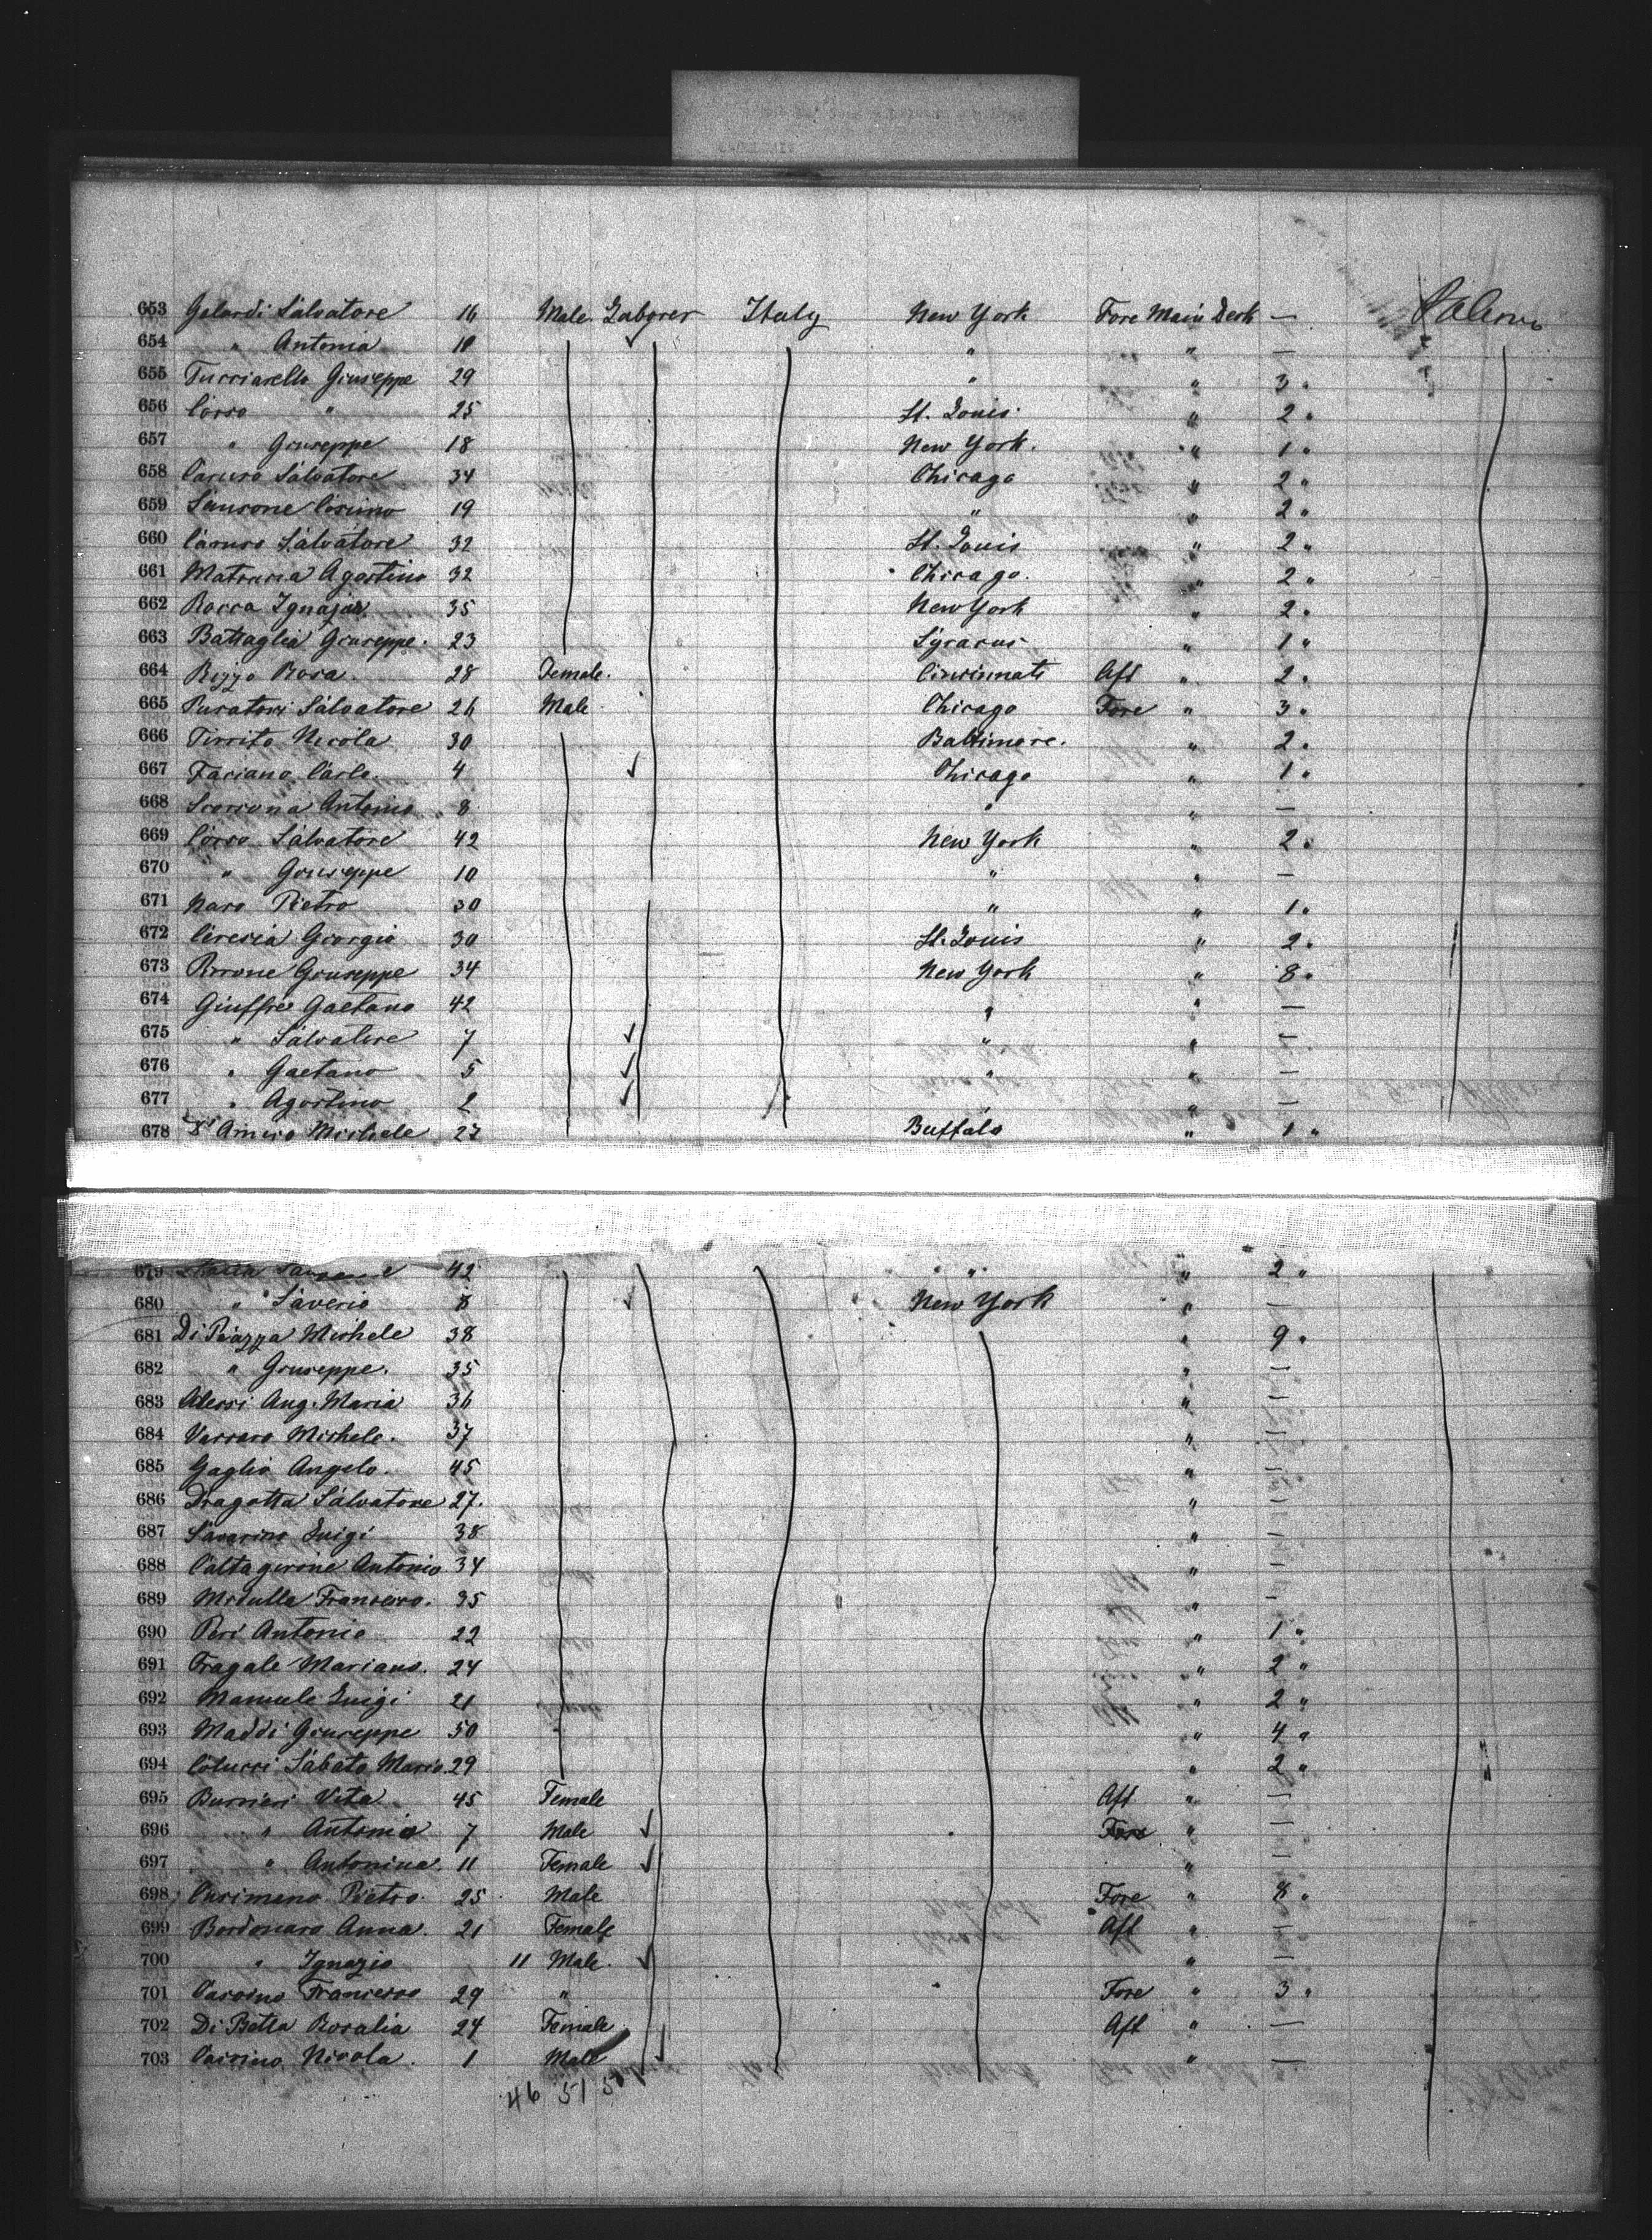 653 Gelardi Salvatore 16 Male Laborer Italy New York Fore Main Deck — Palermo
654 " Antonia 18 " " —
655 Tucciarello Giuseppe 29 " " 3 "
656 Corso " 25 St. Louis " 2 "
657 " Giuseppe 18 New York. " 1 "
658 Caruso Salvatore 34 Chicago " 2 "
659 Sansone Cosimo 19 " " 2 "
660 Caruso Salvatore 32 St. Louis " 2 "
661 Agostino 32 Chicago. " 2 "
662 Rocca Ignazio 35 New York " 2 "
663 Battaglia Giuseppe. 23 Syracus " 1 "
664 Rizzo Rosa. 28 Female. Cincinnati Aft " 2 "
665 Puratori Salvatore 26 Male Chicago Fore " 3 "
666 Tirrito Nicola 30 Baltimore. " 2 "
667 Faciano Carlo. 4 Chicago " 1 "
668 Scorsona Antonio 8 " " —
669 Corso Salvatore 42 New York " 2 "
670 " Giuseppe 10 " " —
671 Naro Pietro 30 " " 1 "
672 Ciresia Giorgio 30 St. Louis " 2 "
673 Perrone Giuseppe 34 New York " 8 "
674 Giuffre Gaetano 42 " " —
675 " Salvatore 7 " " —
676 " Gaetano 5 " " —
677 " Agostino 2 " —
678 D'Amico Michele 27 Buffalo " 1 "
679 42 " " 2 "
680 " Saverio 8 New York " —
681 Di Piazza Michele 38 " 9 "
682 " Giuseppe. 35 " —
683 Alessi Ang. Maria 36 " —
684 Vassaro Michele. 37 " —
685 Gaglio Angelo. 45 " —
686 Dragotta Salvatore 27. " —
687 Savarino Luigi 38 " —
688 Caltagirone Antonio 34 " —
689 Midulla Francesco. 35 " —
690 Peri Antonio 22 " 1 "
691 Fragale Mariano. 24 " 2 "
692 Manuele Luigi 21 " 2 "
693 Maddi Giuseppe 50 " 4 "
694 Colucci Sabato Maria 29 " 2 "
695 Burrieri Vita 45 Female Aft " —
696 " Antonio 7 Male Fore " —
697 " Antonina. 11 Female " —
698 Curimano Pietro. 25 Male Fore " 8 "
699 Bordonaro Anna. 21 Female Aft " —
700 " Ignazio 11 Male. " —
701 Cascino Francesco 29 " Fore " 3 "
702 Di Betta Rosalia 24 Female Aft " —
703 Cascino Nicola. 1 Male " —
46 51